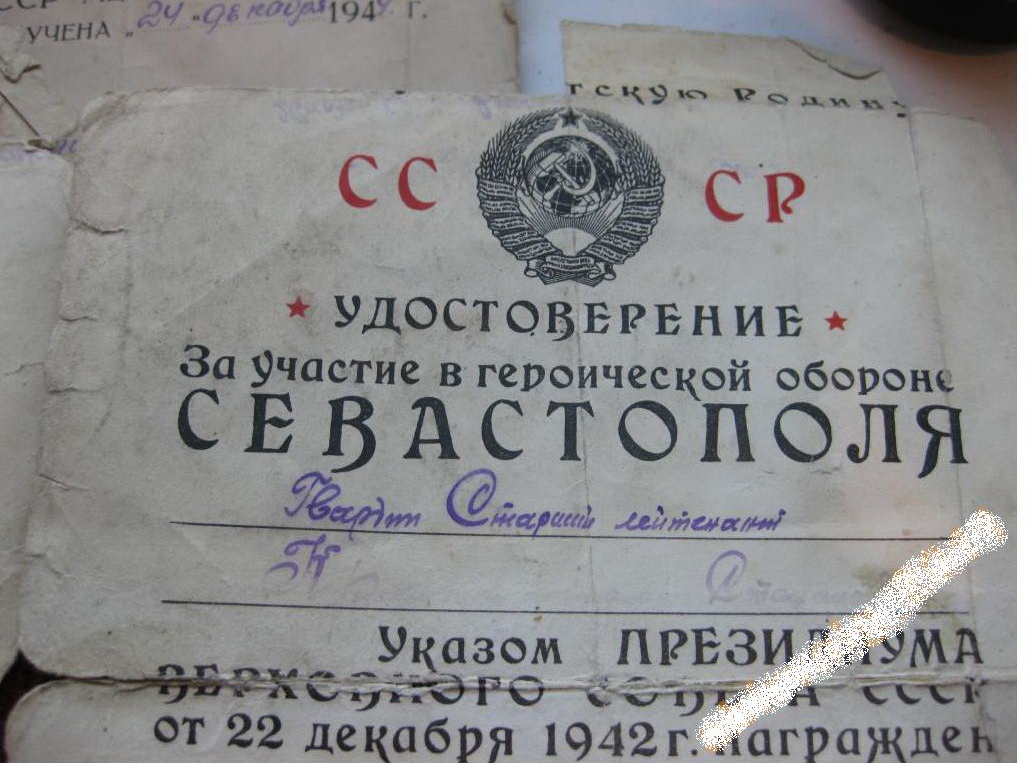 УЧЕНА „24 " декабря 194 г.
тскую Родину
СССР
УДОСТОВЕРЕНИЕ
За участие в героической обороне
СЕВАСТОПОЛЯ
Гвардии Старший лейтенант
Указом ПРЕЗИДИУМА
ВЕРХОВНОГО СОВЕТА СССР
от 22 декабря 1942 г. награжден